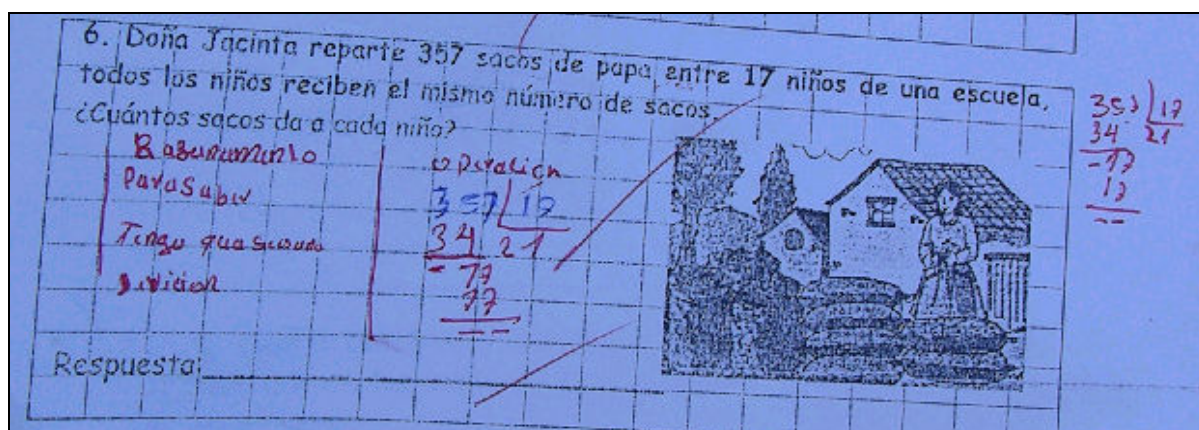 6. Doña Jacinta reparte 357 sacos de papa entre 17 niños de una escuela,
todos los niños reciben el mismo número de sacos.
¿Cuántos sacos da a cada niño?
Para saber
Tengo que
operación
357 17
34 21
- 17
--
Respuesta:
357 17
34 21
- 17
17
--